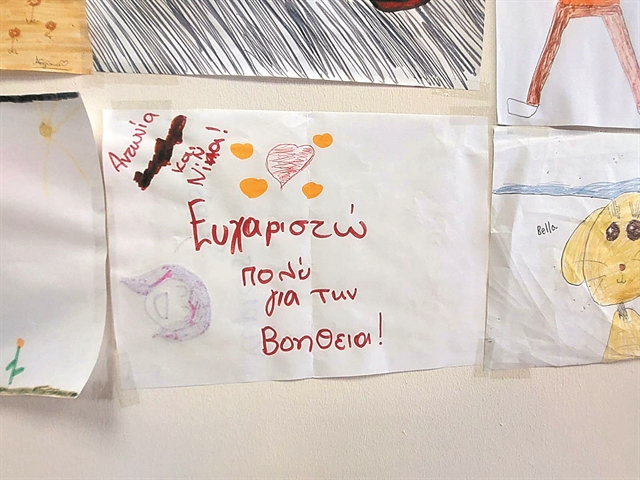 Αντωνία
και
Νίνα!
Ευχαριστώ
πολύ
για την
Βοηθεια!
Bella.